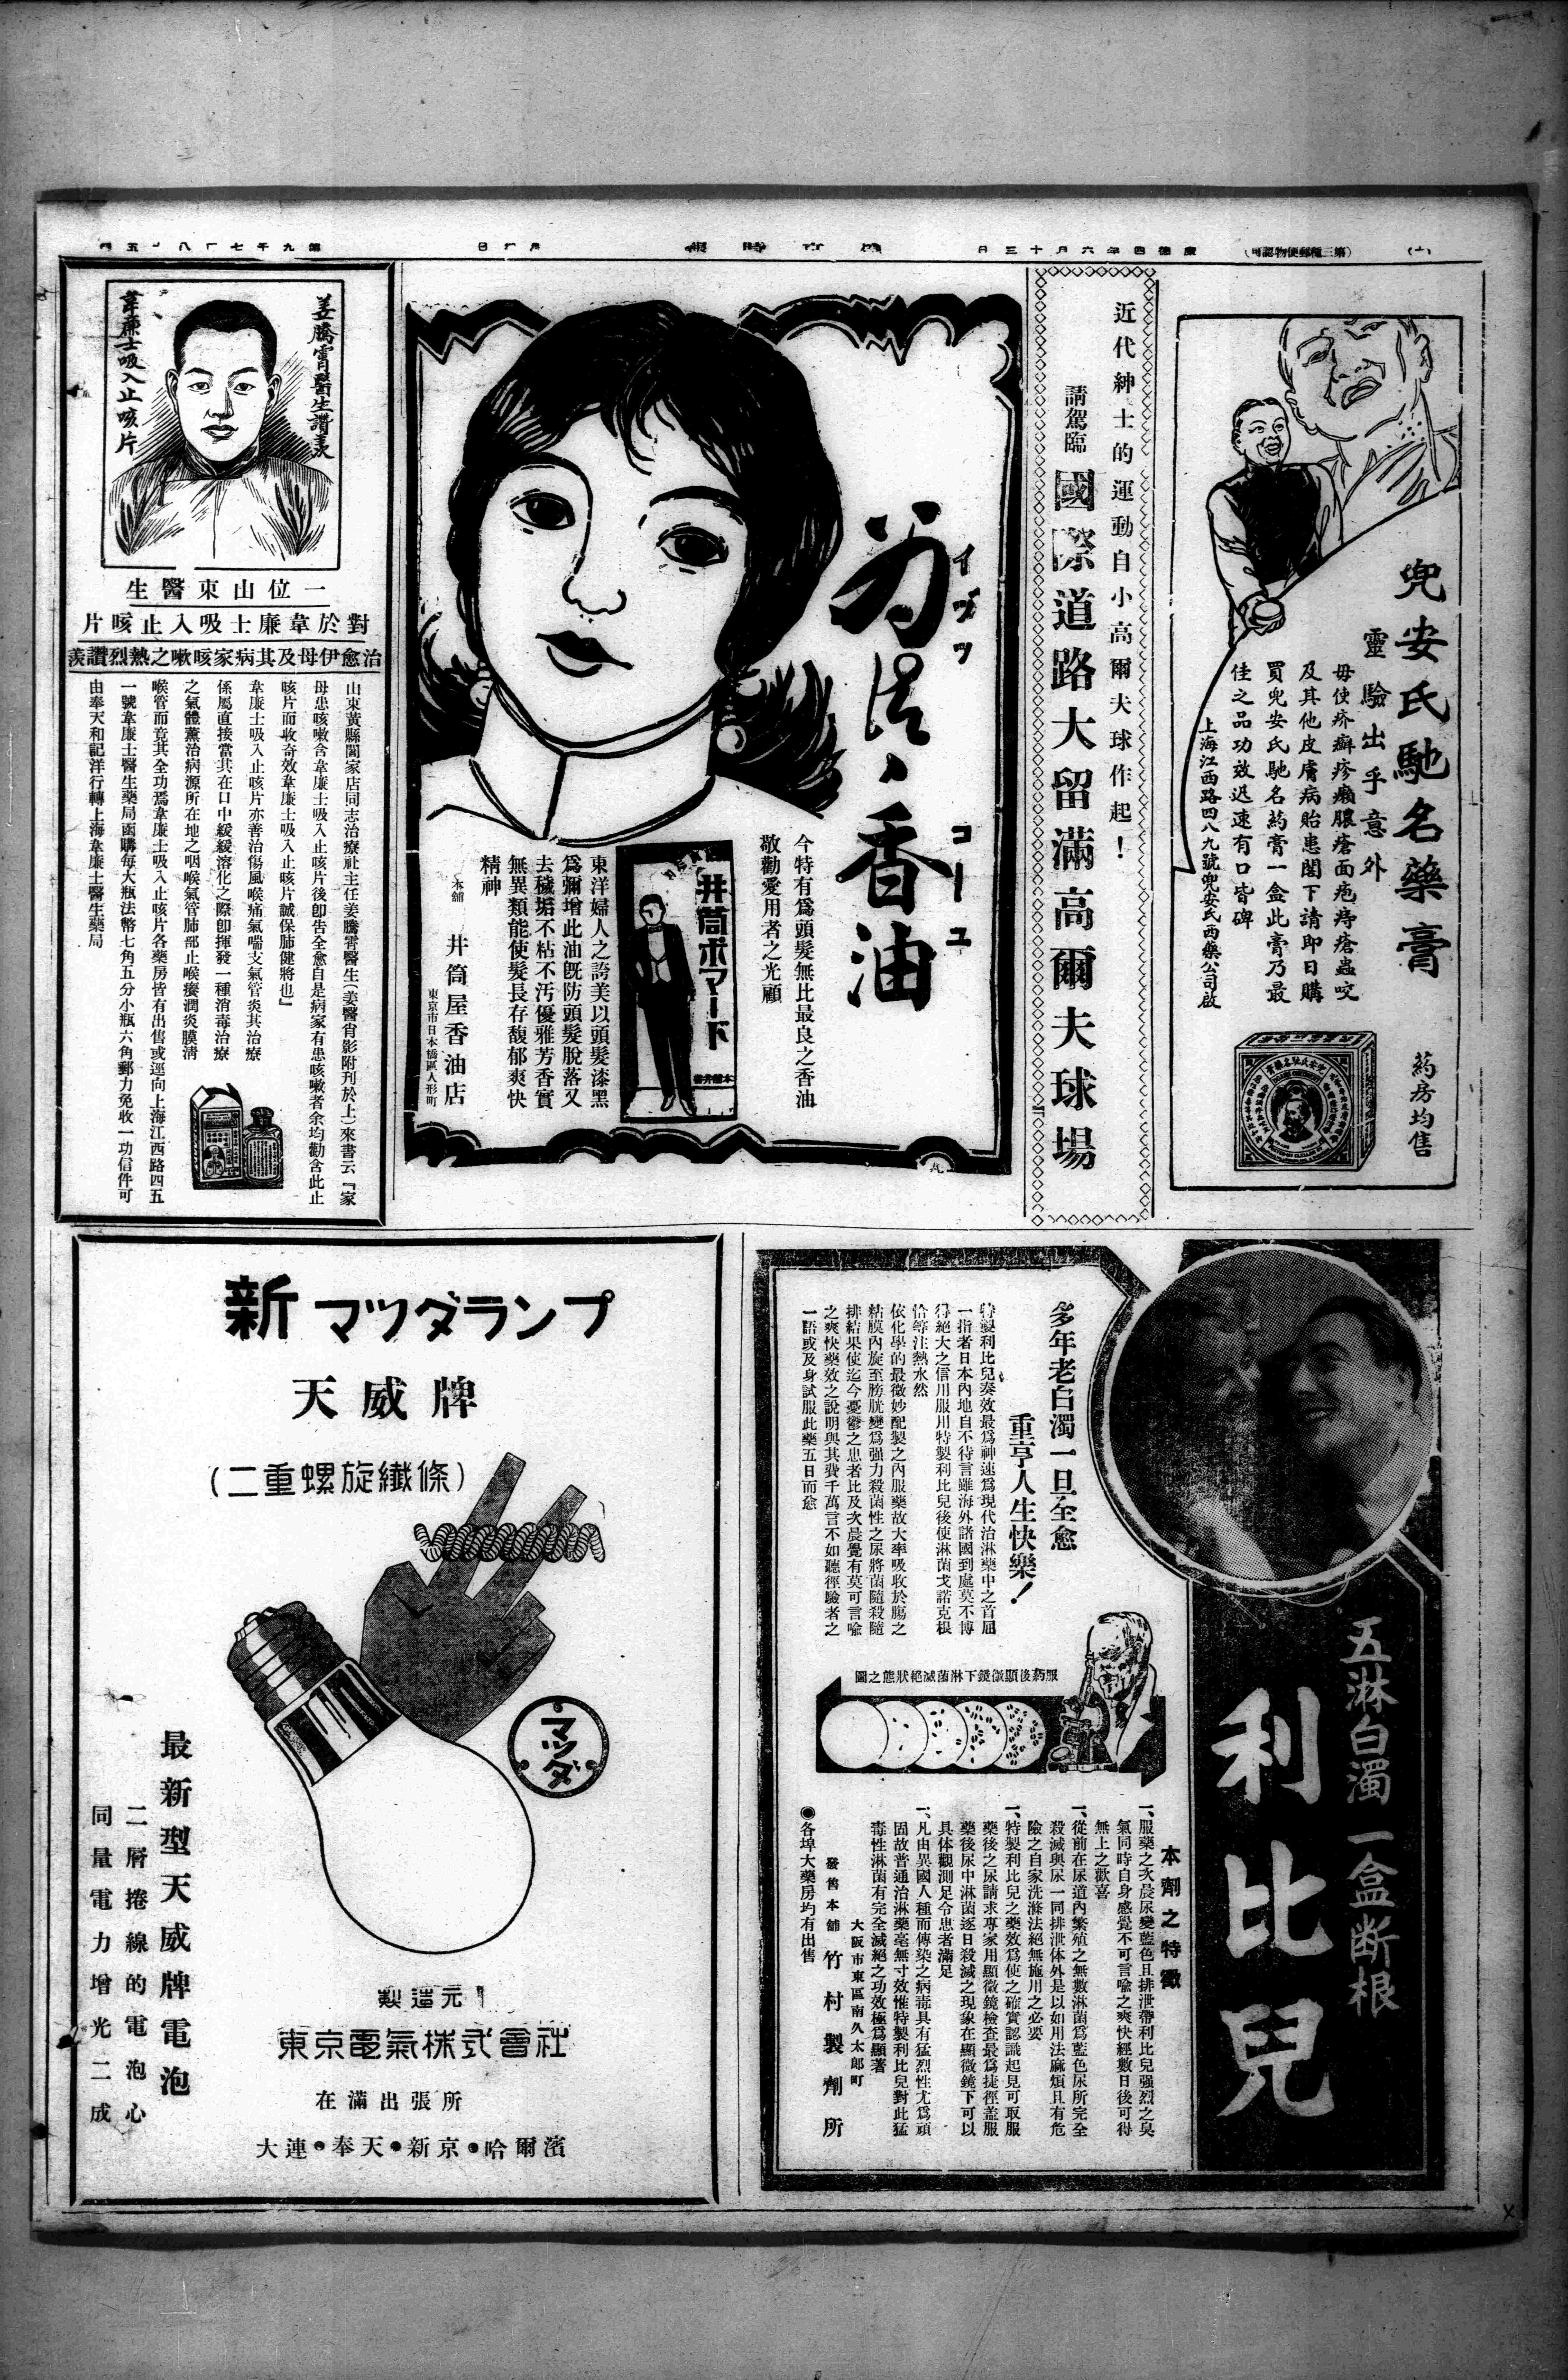 (十)
(第三種郵便物認可)
康德四年六月十三日
兜安氏馳名藥膏
靈驗出乎意外
毋使疥癬疹癩膿瘡面疱痔瘡蟲咬
及其他皮膚病貽患閣下請即日購
買兜安氏馳名葯膏一盒此膏乃最
佳之品功效迅速有口皆碑
上海江西路四八九號兜安氏西藥公司啟
葯房均售
近代紳士的運動自小高爾夫球作起！
請駕臨 國際道路大留滿高爾夫球場
イヅツコーユ
香油
今特有爲頭髮無比最良之香油
敬勸愛用者之光顧
井筒ポマード
東洋婦人之誇美以頭髮漆黑
爲彌增此油旣防頭髮脫落又
去穢垢不粘不汚優雅芳香實
無異類能使髮長存馥郁爽快
精神
本舖 井筒屋香油店
東京市日本橋區人形町
姜騰霄醫生讚美
韋廉士吸入止咳片
一位山東醫生
對於韋廉士吸入止咳片
治愈伊母及其病家咳嗽之熱烈讚羨
山東黃縣閻家店同志治療社主任姜騰霄醫生(姜醫肖影附刊於上)來書云『家
母患咳嗽含韋廉士吸入止咳片後卽告全愈自是病家有患咳嗽者余均勸含此止
咳片而收奇效韋廉士吸入止咳片誠保肺健將也』
韋廉士吸入止咳片亦善治傷風喉痛氣喘支氣管炎其治療
係屬直接當其在口中緩緩溶化之際卽揮發一種消毒治療
之氣體薰治病源所在地之咽喉氣管肺部止喉癢潤炎膜淸
喉管而竟其全功焉韋廉士吸入止咳片各藥房皆有出售或逕向上海江西路四五
一號韋廉士醫生藥局函購每大瓶法幣七角五分小瓶六角郵力免收一功信件可
由奉天和記洋行轉上海韋廉士醫生藥局
五淋白濁一盒断根
利比兒
多年老白濁一旦全愈
重享人生快樂！
特製利比兒奏效最爲神速爲現代治淋藥中之首屈
一指者日本內地自不待言雖海外諸國到處莫不博
得絕大之信用服用特製利比兒後使淋菌戈諾克根
恰等注熱水然
依化學的最微妙配製之內服藥故大率吸收於腸之
粘膜內旋至膀胱變爲强力殺菌性之尿將菌隨殺隨
排結果使迄今憂鬱之患者比及次晨覺有莫可言喩
之爽快藥效之說明與其費千萬言不如聽徑驗者之
一語或及身試服此藥五日而愈
服葯後顯微鏡下淋菌滅絕狀態之圖
本劑之特徵
一、服藥之次晨尿變藍色且排泄帶利比兒强烈之臭
氣同時自身感覺不可言喩之爽快經數日後可得
無上之歡喜
一、從前在尿道內繁殖之無數淋菌爲藍色尿所完全
殺滅與尿一同排泄体外是以如用法麻煩且有危
險之自家洗滌法絕無施用之必要
一、特製利比兒之藥效爲使之確實認識起見可取服
藥後之尿請求專家用顯微鏡檢查最爲捷徑盖服
藥後尿中淋菌逐日殺滅之現象在顯微鏡下可以
具体觀測足令患者滿足
一、凡由異國人種而傳染之病毒具有猛烈性尤爲頑
固故普通治淋藥毫無寸效惟特製利比兒對此猛
毒性淋菌有完全滅絕之功效極爲顯著
大阪市東區南久太郎町
發售本舖 竹村製劑所
◉各埠大藥房均有出售
新マツダランプ
天威牌
(二重螺旋纖條)
マツダ
最新型天威牌電泡
二層捲線的電泡心
同量電力增光二成
製造元
東京電氣株式會社
在滿出張所
大連●奉天●新京●哈爾濱